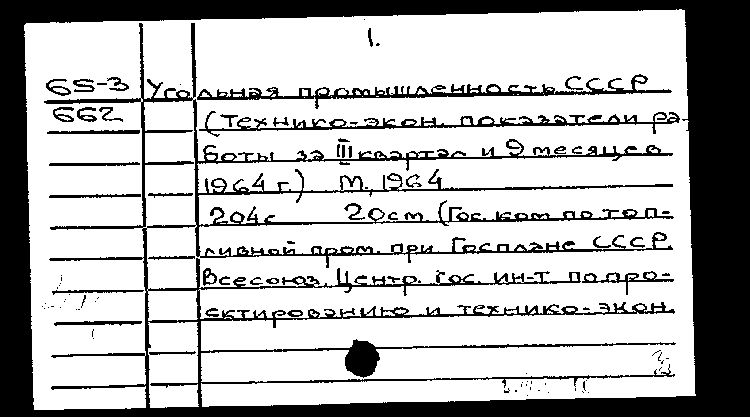 1.
65-3 Угольная промышленность СССР
662 (Технико-экон. показатели ра-
боты за III квартал и 9 месяцев
1964 г.) М., 1964
204с 20см (Гос. ком. по топ-
ливной пром. при Госплане СССР.
Всесоюз. Центр. Гос. ин-т по про-
ектированию и технико-экон.